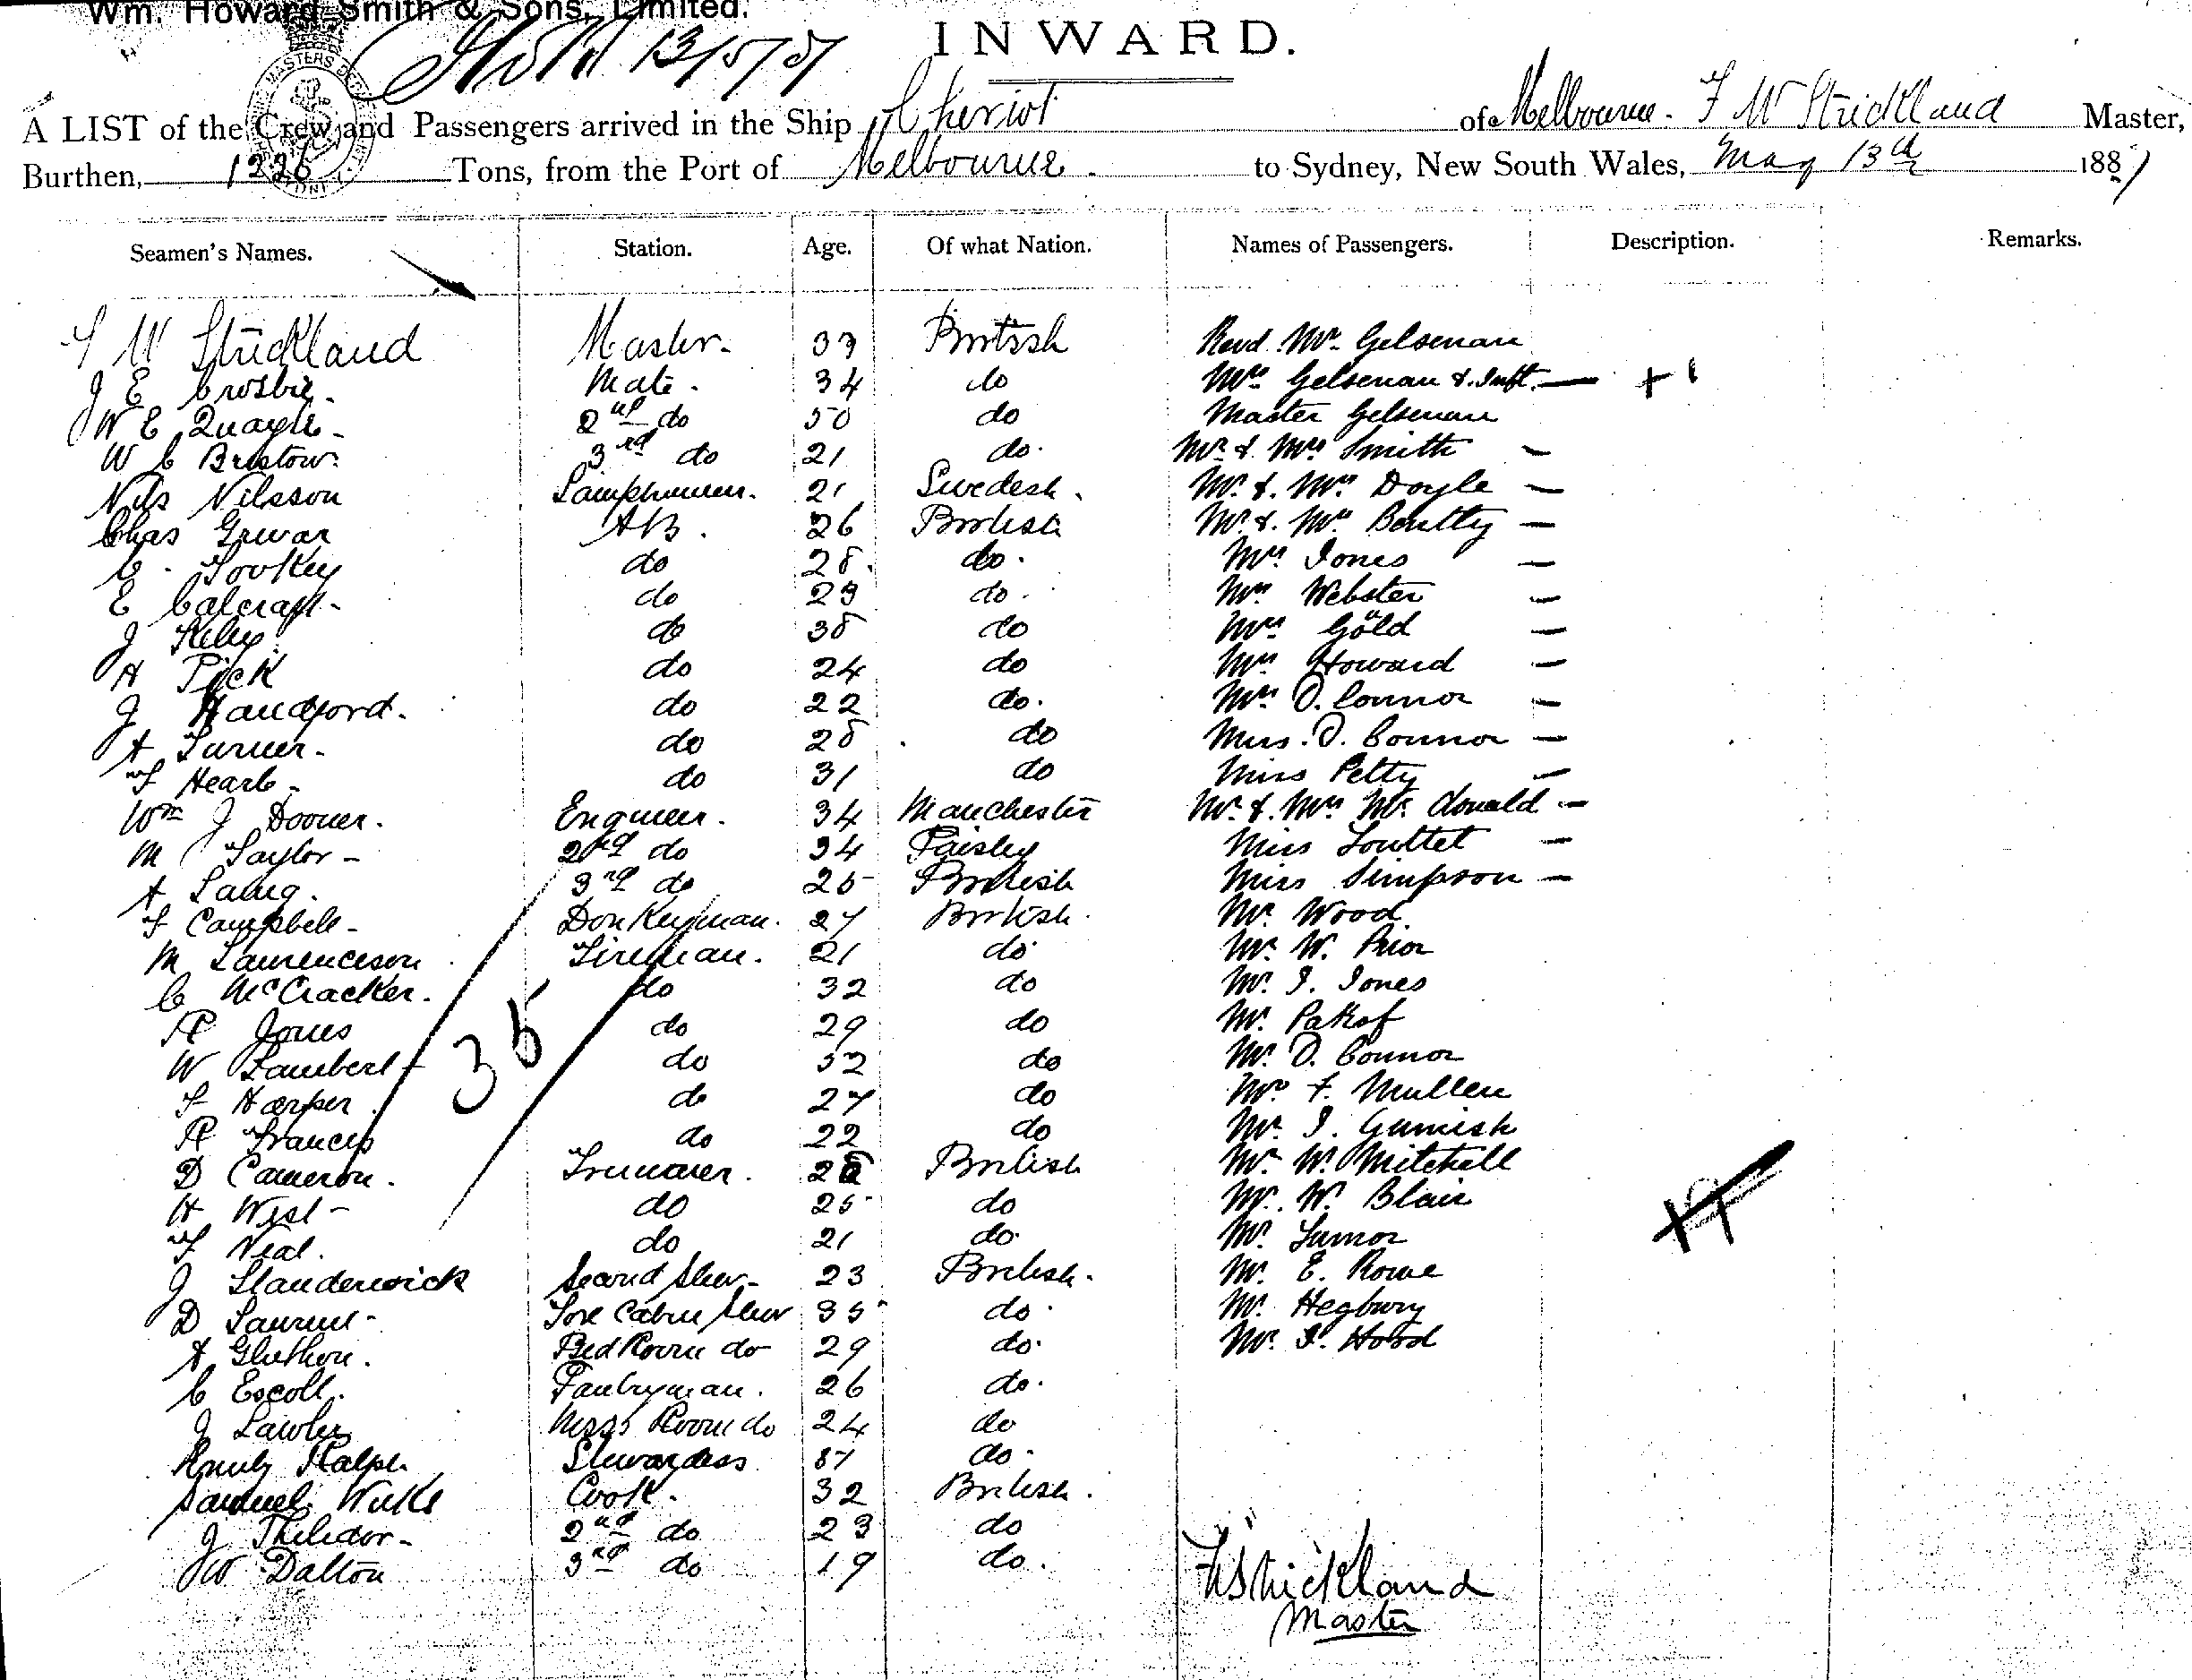 Wm. Howard Smith & Sons, Limited.
INWARD.
13/5/87
A LIST of the Crew and Passengers arrived in the Ship Cheviot of Melbourne. F W Strickland Master,
Burthen, 1226 Tons, from the Port of Melbourne. to Sydney, New South Wales, May 13th 1887
Seamen's Names. Station. Age. Of what Nation. Names of Passengers. Description. Remarks.
F W Strickland Master. 33 British Revd. Mr. Gelsenan
J E Crosbie. Mate. 34 do Mrs Gelsenan & Inft. — +
W E Quayle 2nd do 50 do Master Gelsenan
W C Bristow. 3rd do 21 do. Mr & Mrs Smith —
Nils Nilsson Lamptrimmer. 21 Swedesh. Mr. & Mrs Doyle —
Chas Grewar AB. 26 British Mr. & Mrs Bentley —
C. Tovkey do 28. do. Mrs Jones —
E Calcraft. do 29 do. Mrs Webster —
J Kelly do 38 do Mrs Gold —
A Pick do 24 do Mrs Howard —
J Handford. do 22 do. Mrs O. Connor —
A Turner. do 28 do Miss. O. Connor —
F Hearb do 31 do Miss Petty —
Wm J Dooner. Engineer. 34 Manchester Mr. & Mrs Mc. donald —
M Taylor 2nd do 34 Paisley Miss Louttet —
A Laing. 3rd do 25 British Miss Simpson —
F Campbell Donkeyman. 27 British. Mr. Wood
M Laurenceson Fireman. 21 do Mr. W. Prior
C McCracken. do 32 do Mr. J. Jones
R Jones do 29 do Mr. Pakof
W Lambert do 32 do Mr. O. Connor
F Harper do 27 do Mr. F. Mullen
R Francis do 22 do Mr. J. Gumish
D Cameron. Trimmer. 28 British Mr. W. Mitchell
H West do 25 do Mr. W. Blair
F Neal. do 21 do. Mr. Lumor
J Standerwick Second Stew. 23 British. Mr. E. Rowe
D Fore Cabin Stew 35 do. Mr. Hegbury
A Bed Room do 29 do. Mr. J. Hood
C Escott. Pantryman. 26 do.
J Lawler Mess Room do 24 do
Emily Ralph Stewardess 37 do.
Samuel Wilks Cook. 32 British.
J 2nd do 23 do
W Dalton 3rd do 19 do.
35
FWStrickland
Master